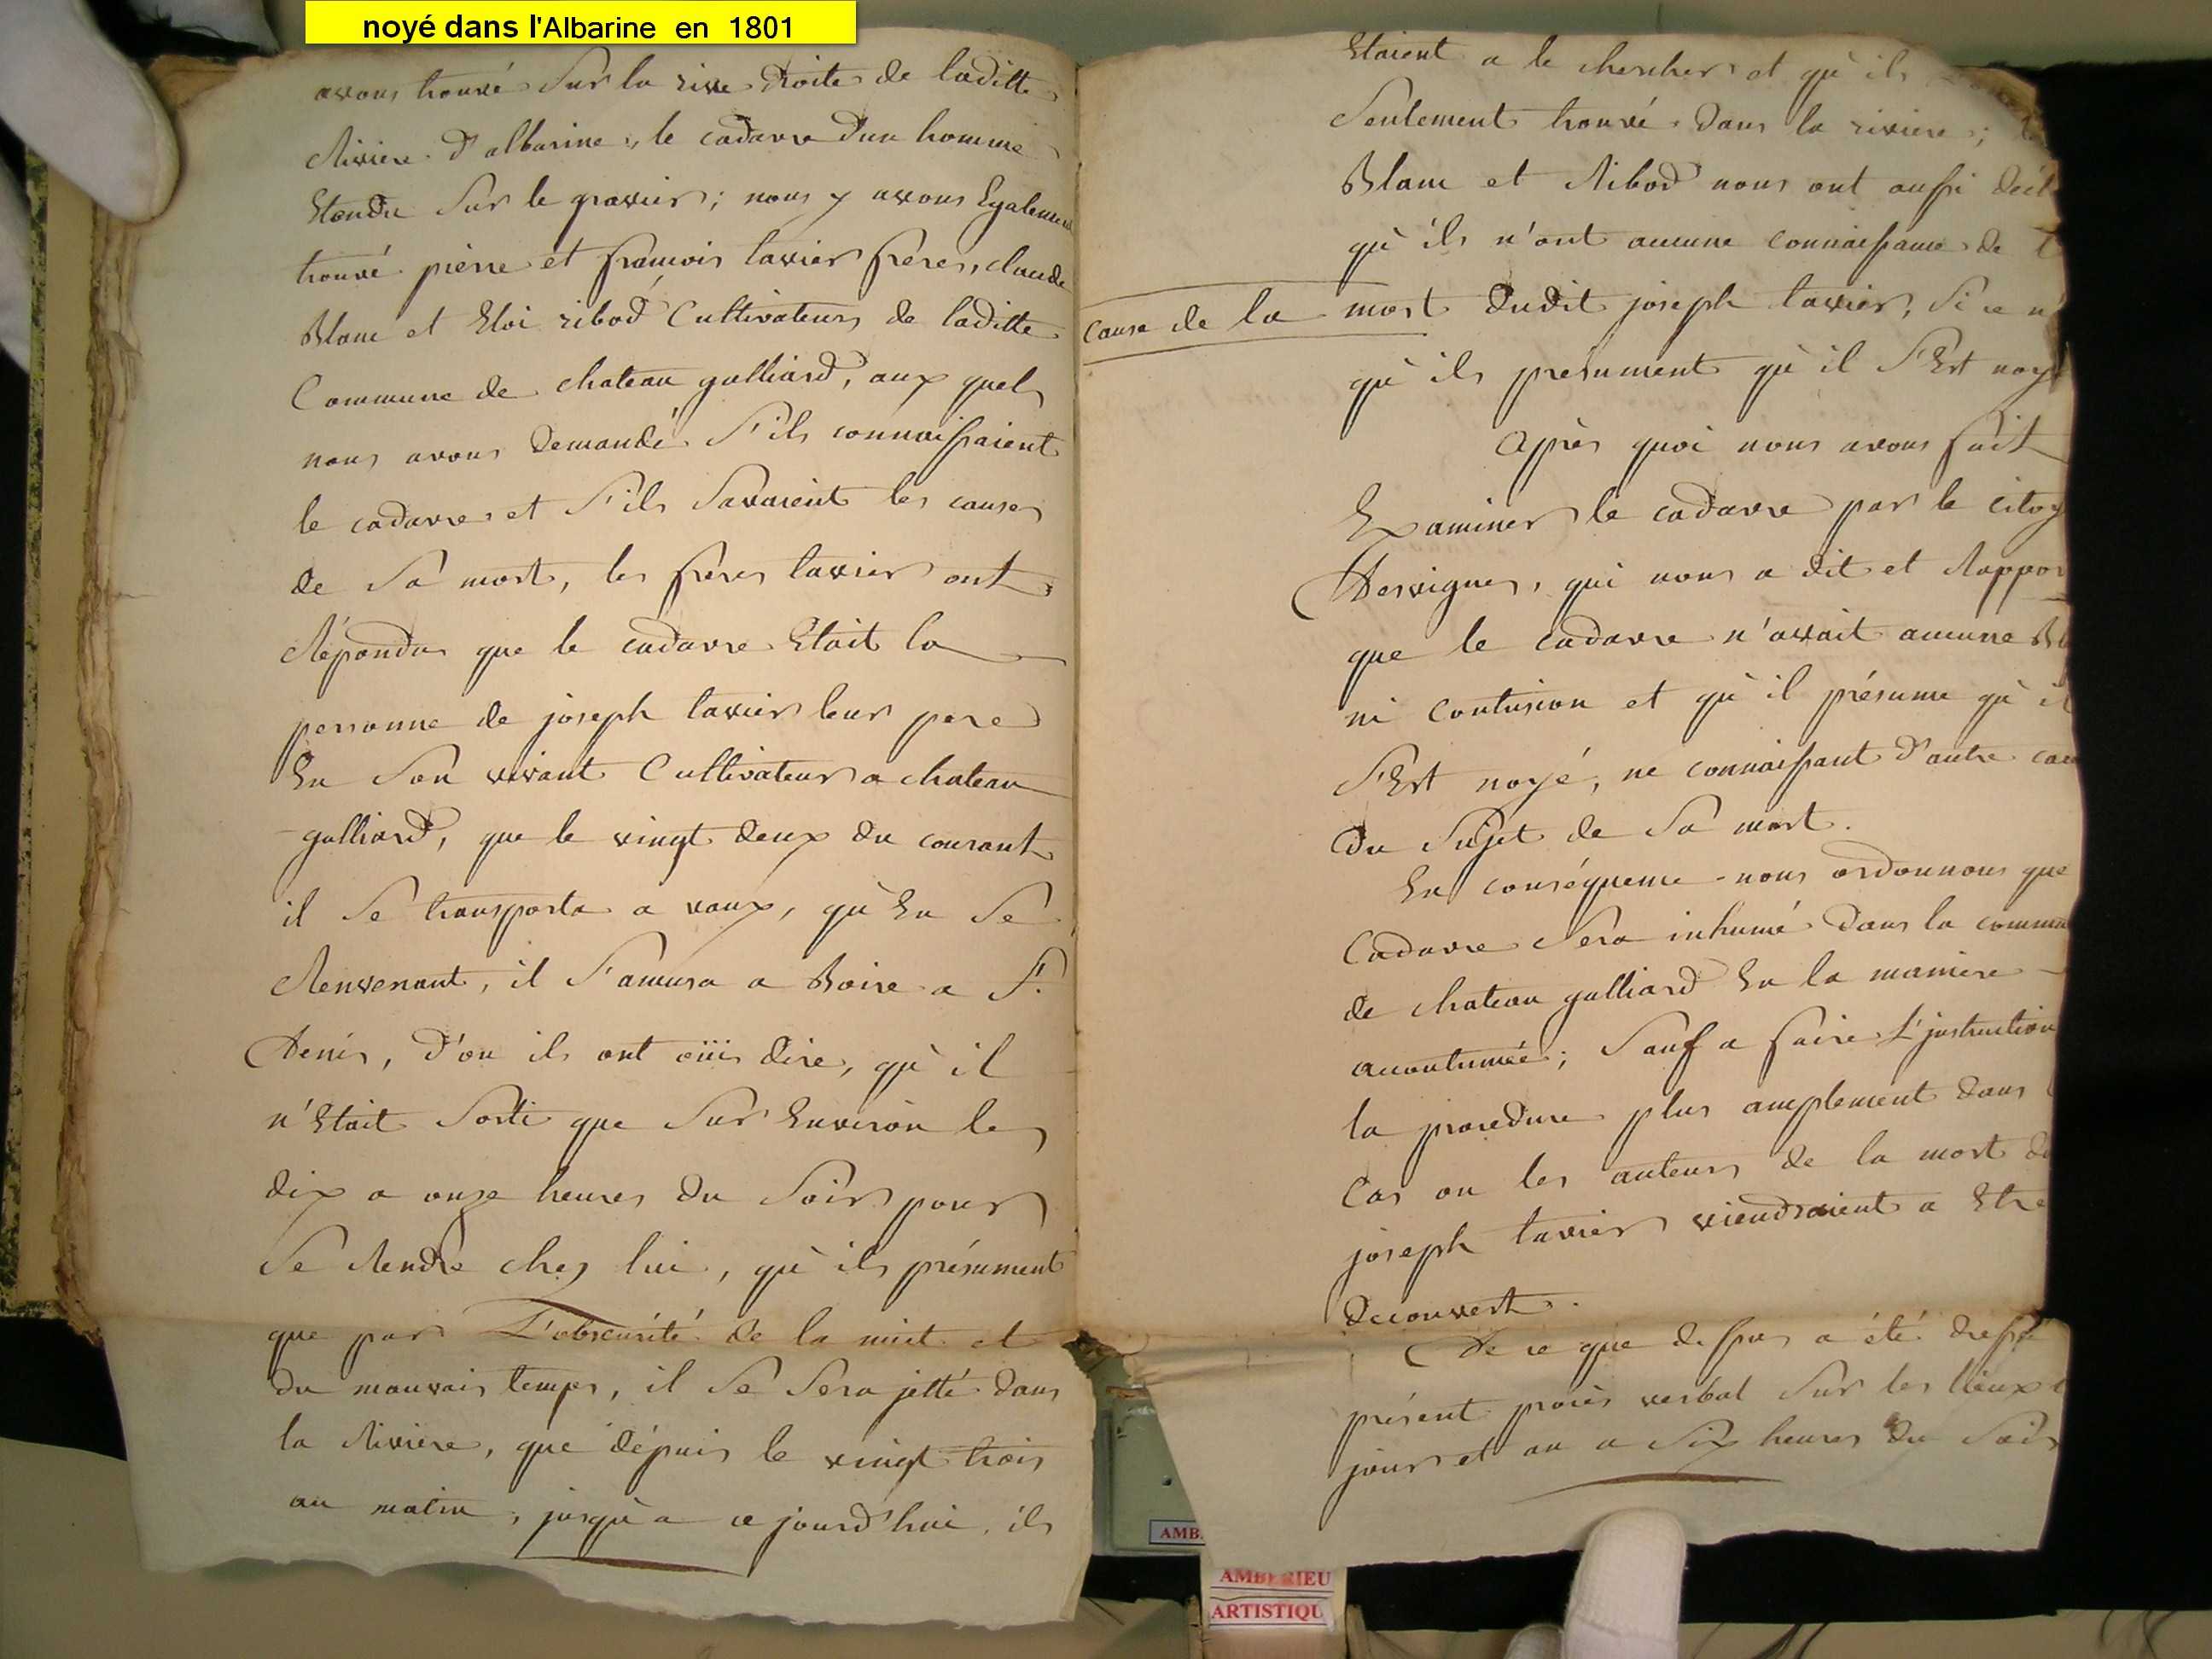 noyé dans l'Albarine en 1801
avons trouvé Sur la rive droite de laditte
Riviere d'albarine, le cadavre dun homme
Etendu Sur le gravier; nous y avons Egalement
trouvé pierre et francois tavier freres, claude
Blanc et Eloi ribod Cultivateurs de laditte
Commune de chateau galliard, aux quels
nous avons demandé S'ils connaissaient
le cadavre et S'ils Savaient les causes
de Sa mort, les freres tavier ont
Répondu que le cadavre Etait la
personne de joseph tavier leur pere
En Son vivant Cultivateur a chateau
galliard, que le vingt deux du courant
il Se transporta a vaux, qu'En Se
Renvenant, il S'amusa a Boire a St.
Denis, d'ou ils ont oüi dire, qu'il
n'Etait Sorti que Sur Environ les
dix a onze heures du Soir pour
Se Rendre chez lui, qu'ils présument
que par L'obscurité de la nuit et
du mauvais temps, il Se Sera jetté dans
la Riviere, que dépuis le vingt trois
au matin, jusqu'a ce jourd'hui, ils
Etaient a le chercher et qu'ils
Seulement trouvé dans la riviere;
Blanc et Ribod nous ont aussi décl
qu'ils n'ont aucune connaissance de
cause de la mort dudit joseph tavier, Si ce n'
qu'ils presument qu'il S'Est noyé
Après quoi nous avons fait
Examiner le cadavre par le citoy
Dervigues, qui nous a dit et Rappor
que le cadavre n'avait aucune
ni Contusion et qu'il présume qu'il
S'Est noyé, ne connaissant d'autre cau
du Sujet de Sa mort.
En conséquence nous ordonnons que
Cadavre Sera inhumé dans la commu
de chateau galliard En la maniere
accoutumée; Sauf a faire L'instruction
la procedure plus amplement dans
Cas ou les auteurs de la mort du
joseph tavier viendraient a Etre
decouvert.
De ce que dessus a été dressé
présent procès verbal Sur les lieux
jour et an a Six heures du Soir
AMB
AMBERIEU
ARTISTIQU